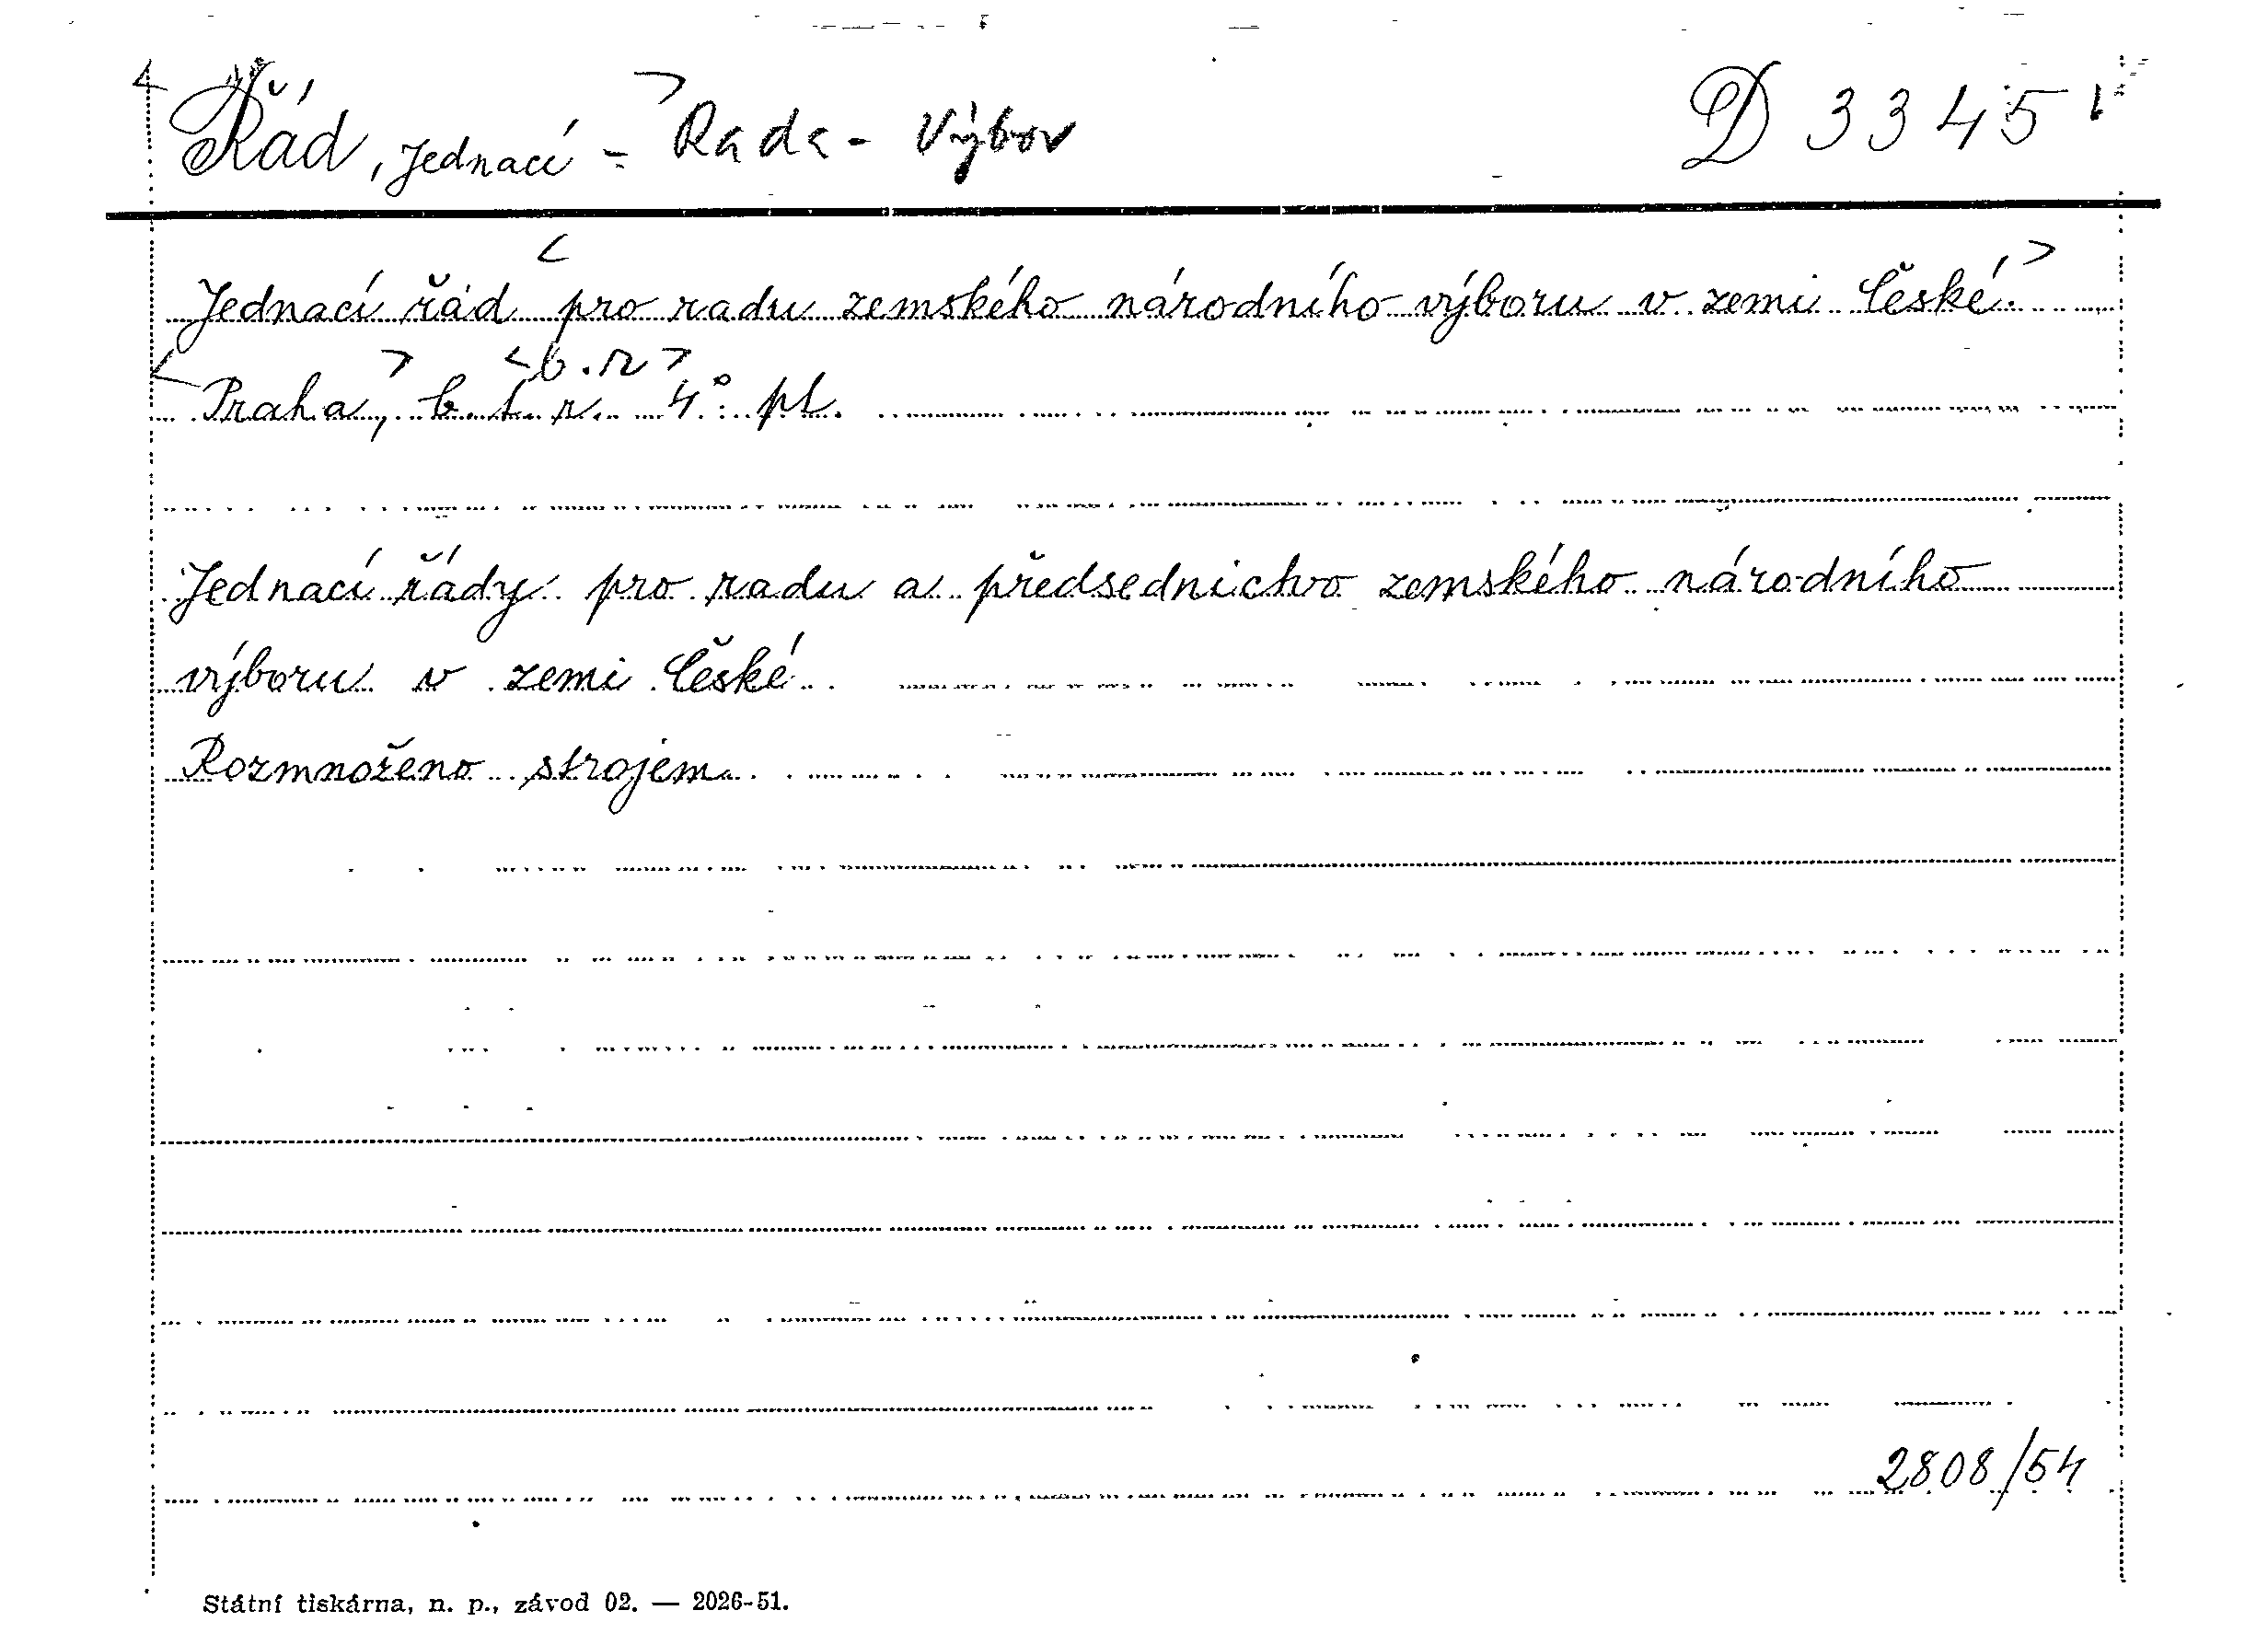 Řád, jednací = Rada - Výbor D 3345
Jednací řád pro radu zemského národního výboru v zemi České.
<b. r>
Praha, b. t. r. 4° pl.
Jednací řády pro radu a předsednictvo zemského národního
výboru v zemi České.
Rozmnoženo strojem.
2808/54
Státní tiskárna, n. p., závod 02. — 2026-51.